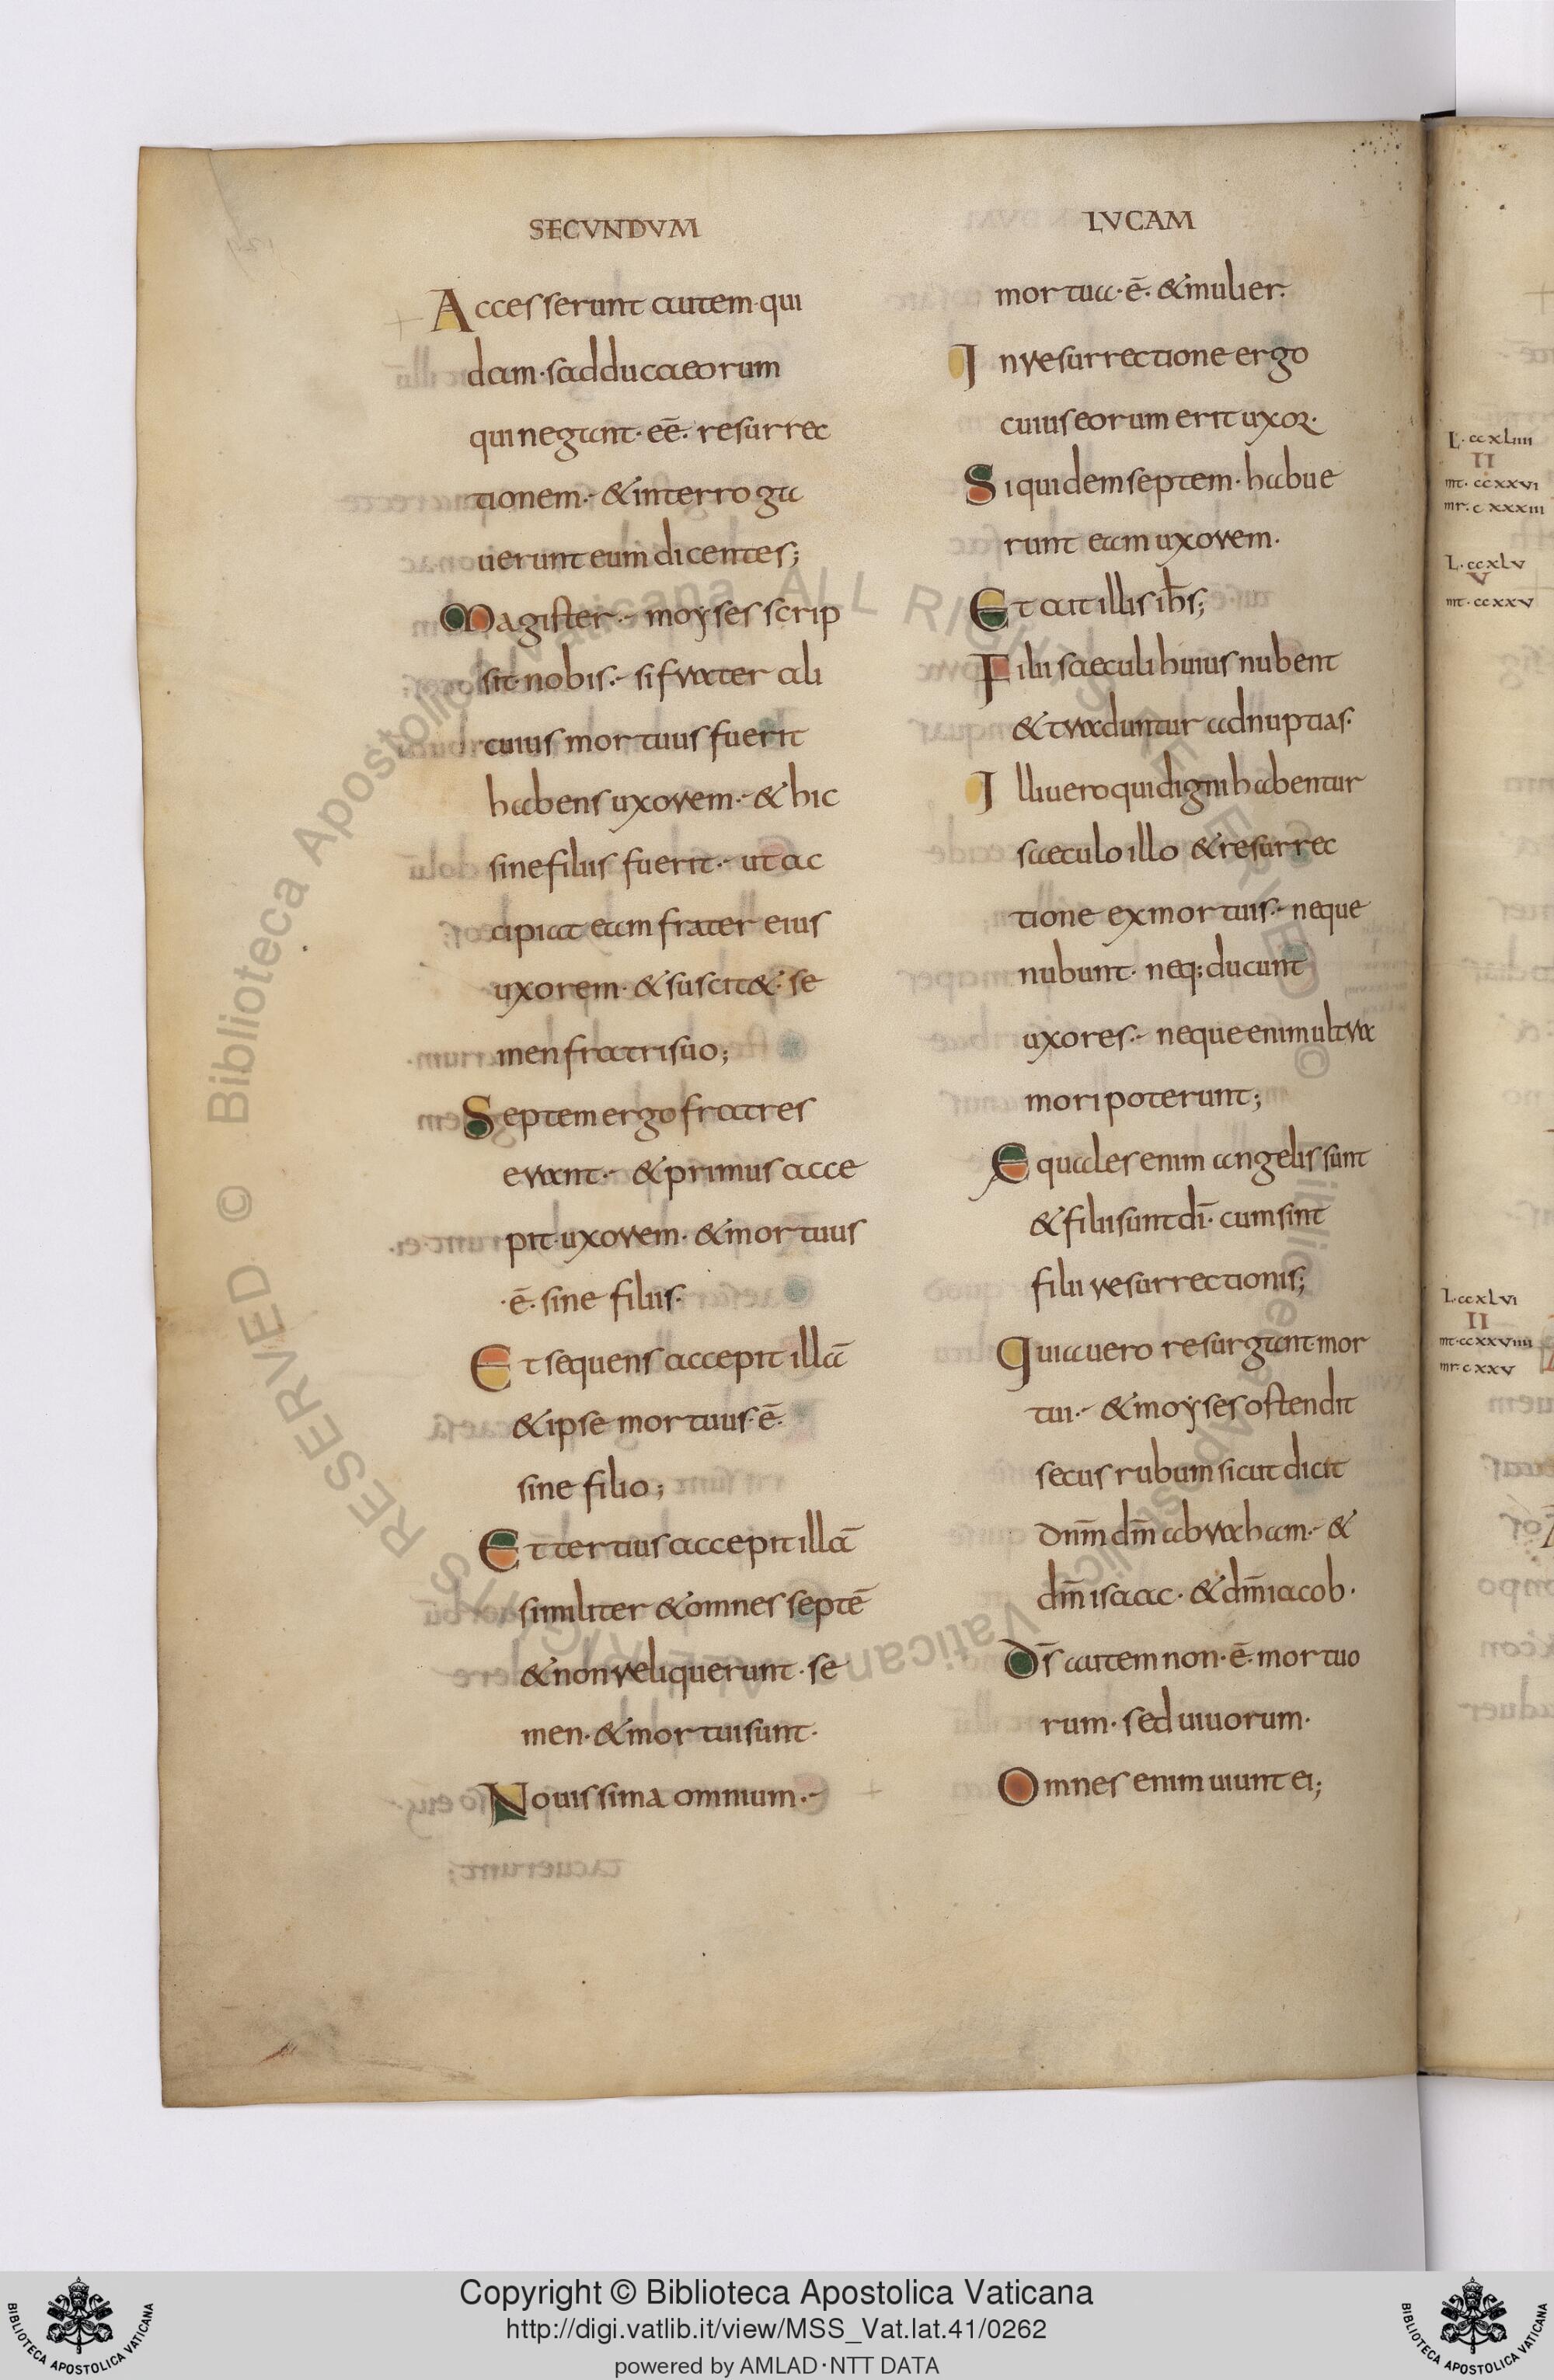 SECVNDVM
Accesserunt autem·qui
dam·sadducaeorum
qui negant·eē·resurrec
tionem·&interroga
uerunt eum dicentes;
Magister·moyses scrip
sit·nobis·si frater ali
cuius mortuus fuerit
habens uxorem·&hic
sine filiis fuerit·ut ac
cipiat eam frater eius
uxorem·&suscit&·se
men fratri suo;
Septem ergo fratres
erant·&primus acce
pit·uxorem·&mortuus
·ē·sine filiis·
Et sequens accepit illā
&ipse mortuus·ē·
sine filio;
Et tertius accepit illā
similiter &omnes septē
&non reliquerunt·se
men·&mortui sunt·
Nouissima omnium·
LVCAM
mortua·ē·&mulier·
In resurrectione ergo
cuius eorum erit uxor·
Siquidem septem·habue
runt eam uxorem·
Et ait illis ih̅s;
Filii saeculi huius nubent
&traduntur ad nuptias·
Illi uero qui digni habentur
saeculo illo &resurrec
tione ex mortuis·neque
nubunt·neq; ducunt
uxores·neque enim ultra
mori poterunt;
Equales enim angelis sunt
&filii sunt dī·cum sint
filii resurrectionis;
Quia uero resurgant mor
tui·&moyses ostendit
secus rubum sicut dicit
dnm̅ dm̅ abraham·&
dm̅ isaac·&dm̅ iacob·
Ds̅ autem non·ē·mortuo
rum·sed uiuorum·
Omnes enim uiunt ei;
L·ccxLiiii
II
mt·ccxxvi
mr·cxxxiii
L·ccxLv
V
mt·ccxxv
L·ccxLvi
II
mt·ccxxviiii
mr·cxxv
© Biblioteca Apostolica Vaticana ALL RIGHTS RESERVED © Biblioteca Apostolica Vaticana ALL RIGHTS RESERVED
Copyright © Biblioteca Apostolica Vaticana
http://digi.vatlib.it/view/MSS_Vat.lat.41/0262
powered by AMLAD·NTT DATA
BIBLIOTECA APOSTOLICA VATICANA
BIBLIOTECA APOSTOLICA VATICANA